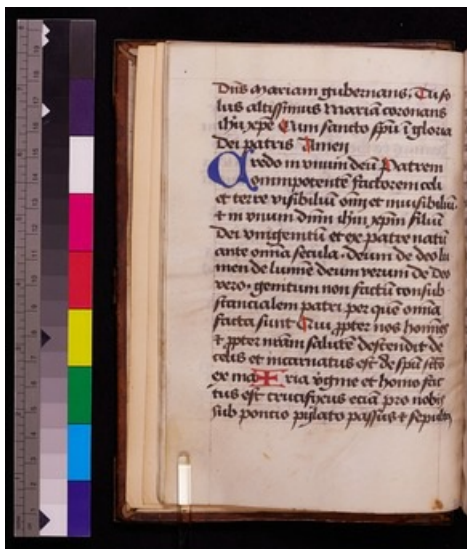 Dn̄s mariam gubernans, Tu so
lus altissimus mariā coronans
ihū xp̄e Cum sancto sp̄u ī gloria
Dei patris Amen
Credo in vnum deū Patrem
omnipotentē factorem celi
et terre visibiliū om̄ et inuisibiliū.
⁊ in vnum dn̄m ihm̄ xp̄m filiū
Dei vnigenitū et ex patre natū
ante om̄ia secula. deum de deo lu
men de lumīe deum verum de deo
vero. genitum non factū consub
stancialem patri per quē om̄ia
facta sunt Qui ꝓpter nos homīes
⁊ ꝓpter nr̄am salutē descendit de
celis et incarnatus est de sp̄u scō
ex ma ria v̄gīne et homo fac
tus est crucifixus eciā pro nobis
sub poncio pylato passus ⁊ sepult9